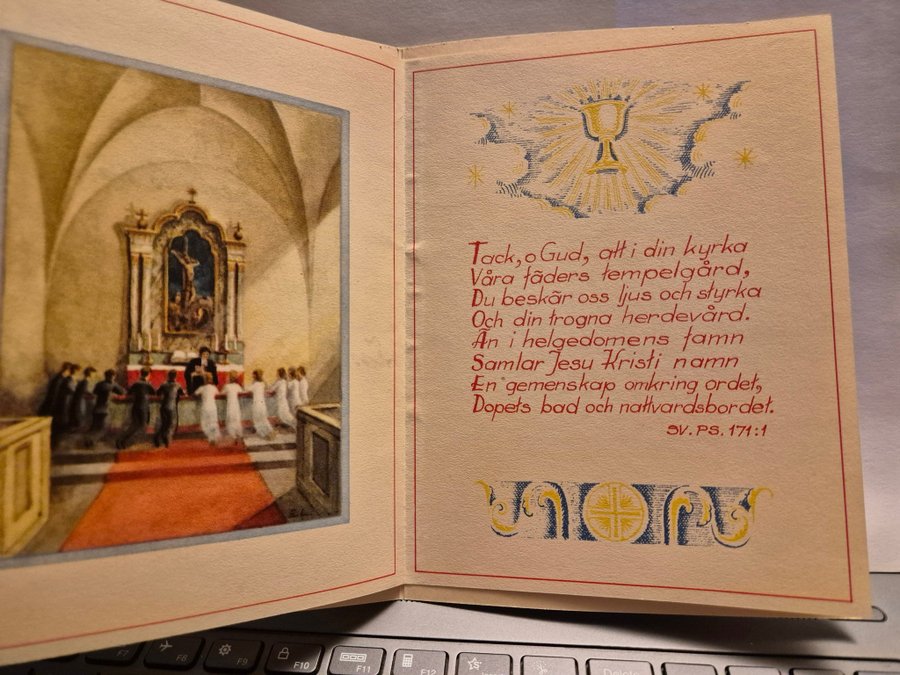 Tack, o Gud, att i din kyrka
Våra fäders tempelgård,
Du beskär oss ljus och styrka
Och din trogna herdevård.
Än i helgedomens famn
Samlar Jesu Kristi namn
En gemenskap omkring ordet,
Dopets bad och nattvardsbordet.
SV. PS. 171:1
F7
F8
F9
F10
F11
F12
Delete